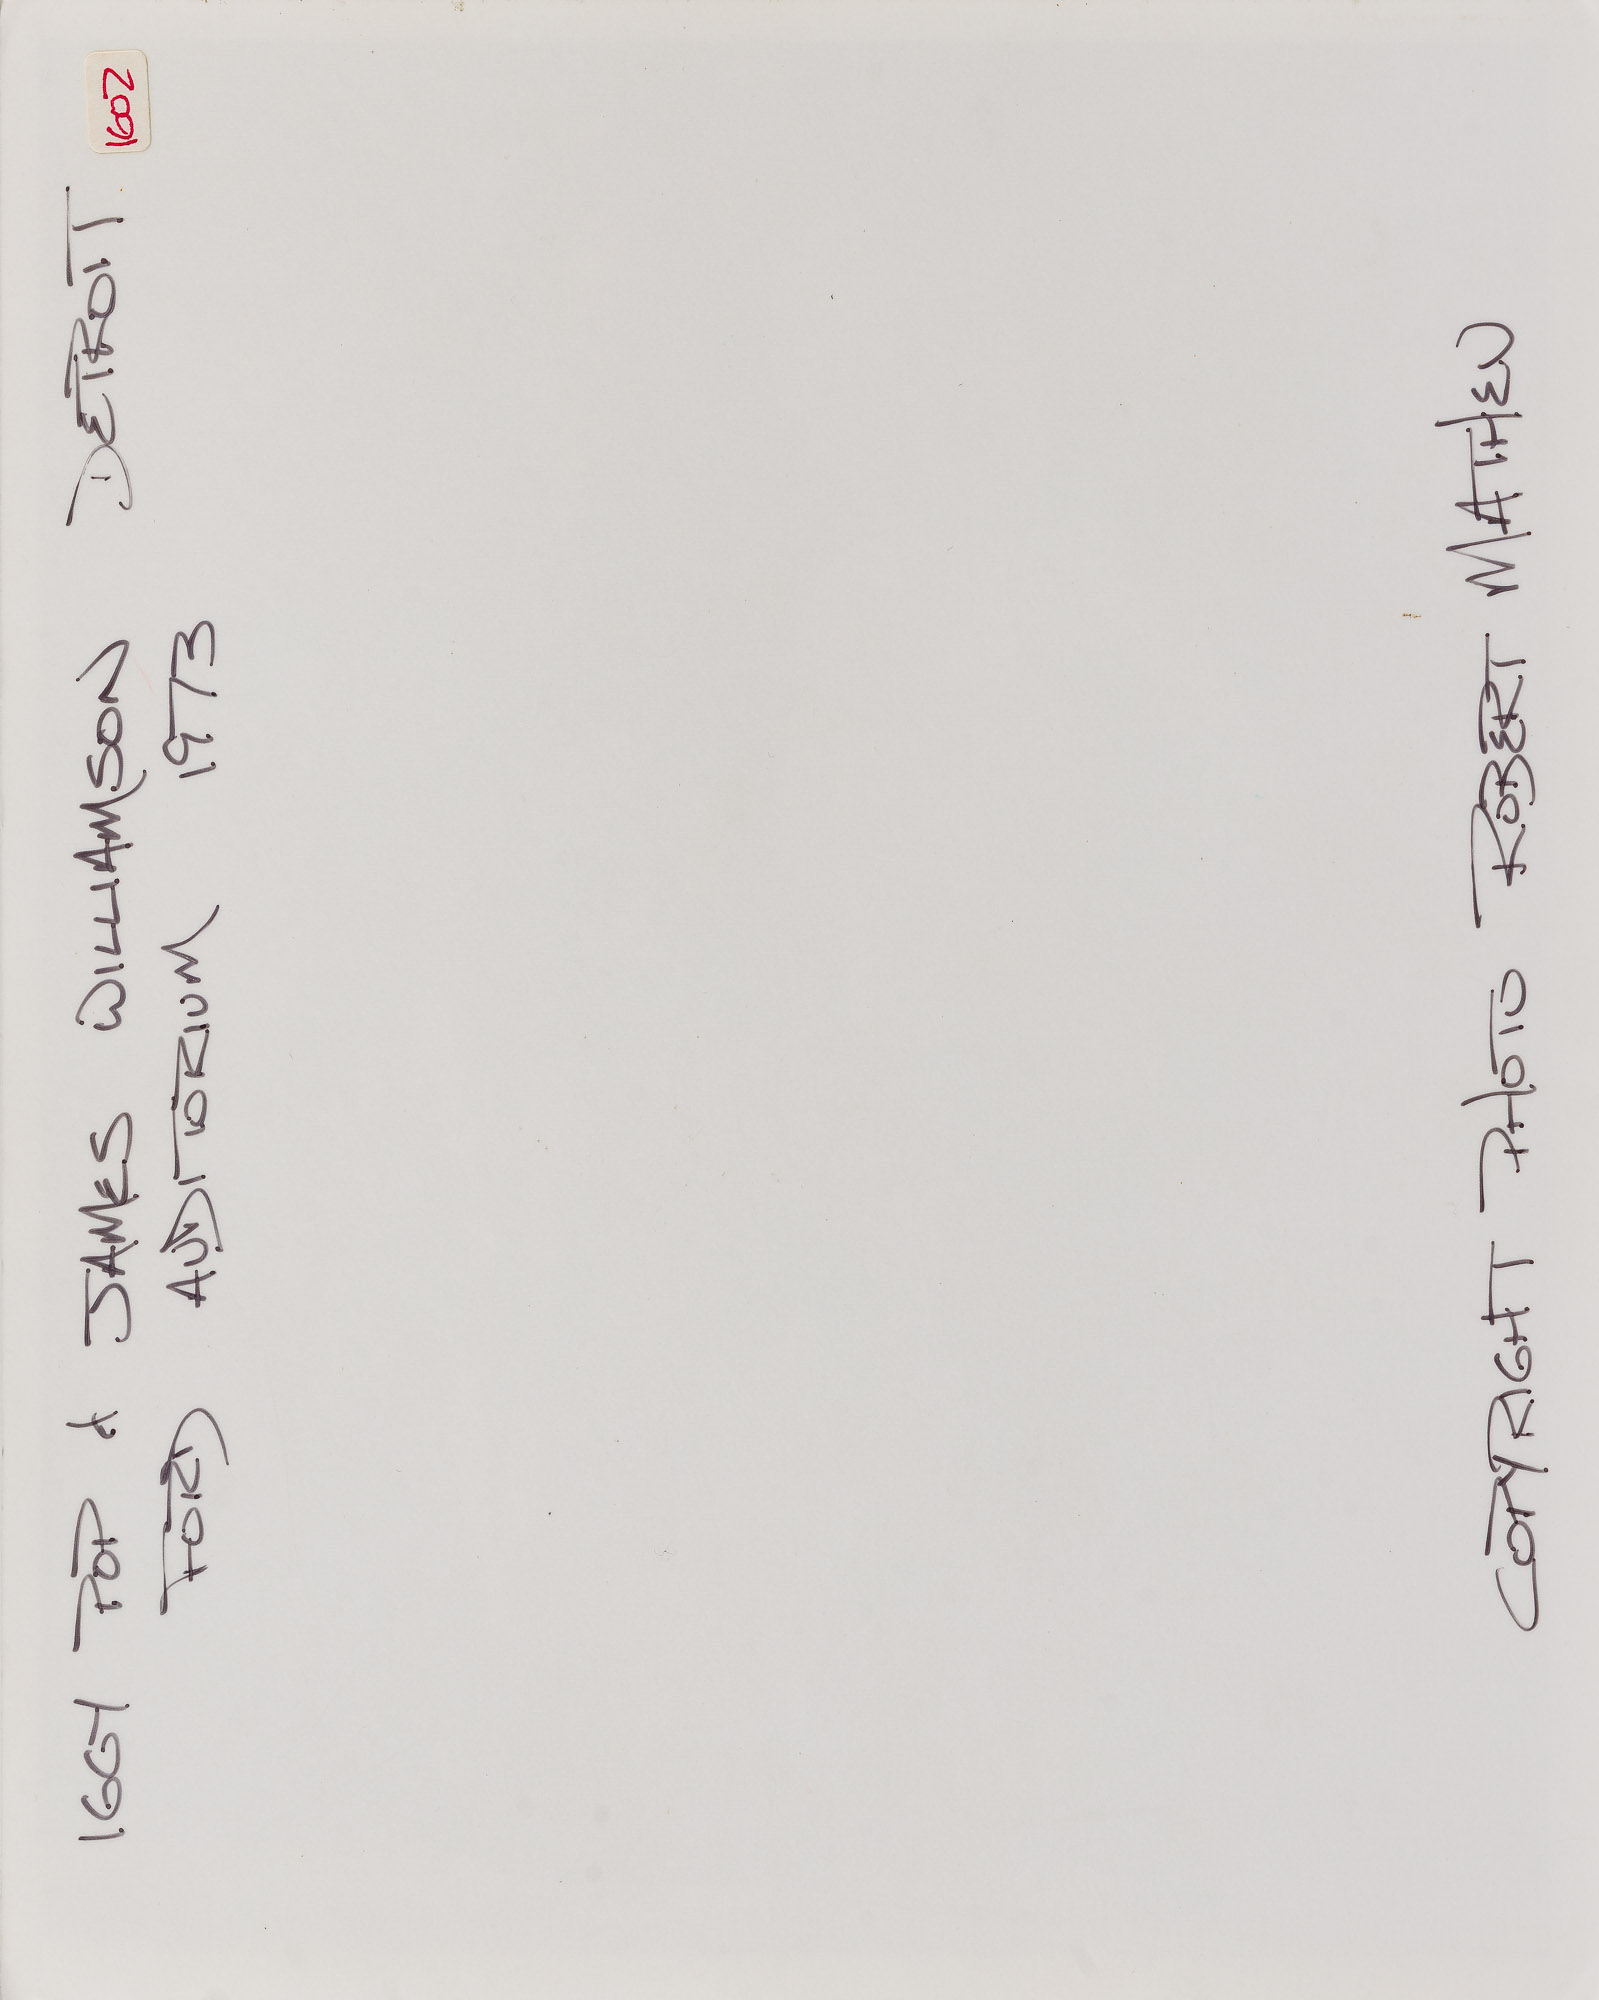 IGGY POP & JAMES WILLIAMSON DETROIT
FORD AUDITORIUM 1973
1602
COPYRIGHT PHOTO ROBERT MATHEW